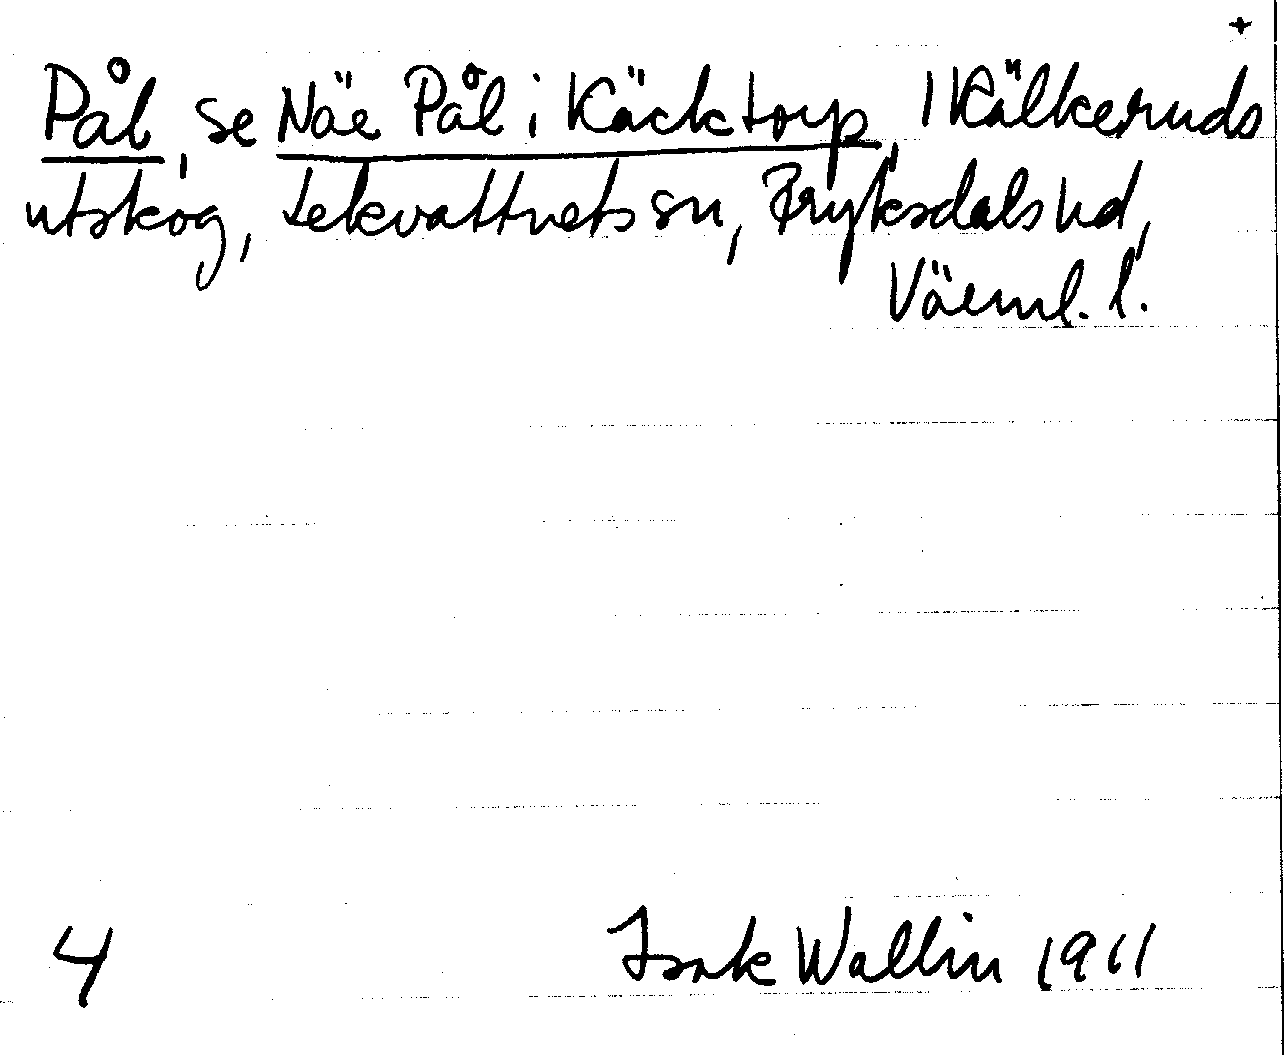 +
Pål, se Näe Pål i Käcktorp, i Kälkeruds
utskog, Lekvattnets sn, Fryksdals hd,
Värml. l.
4 Isak Wallin 1911